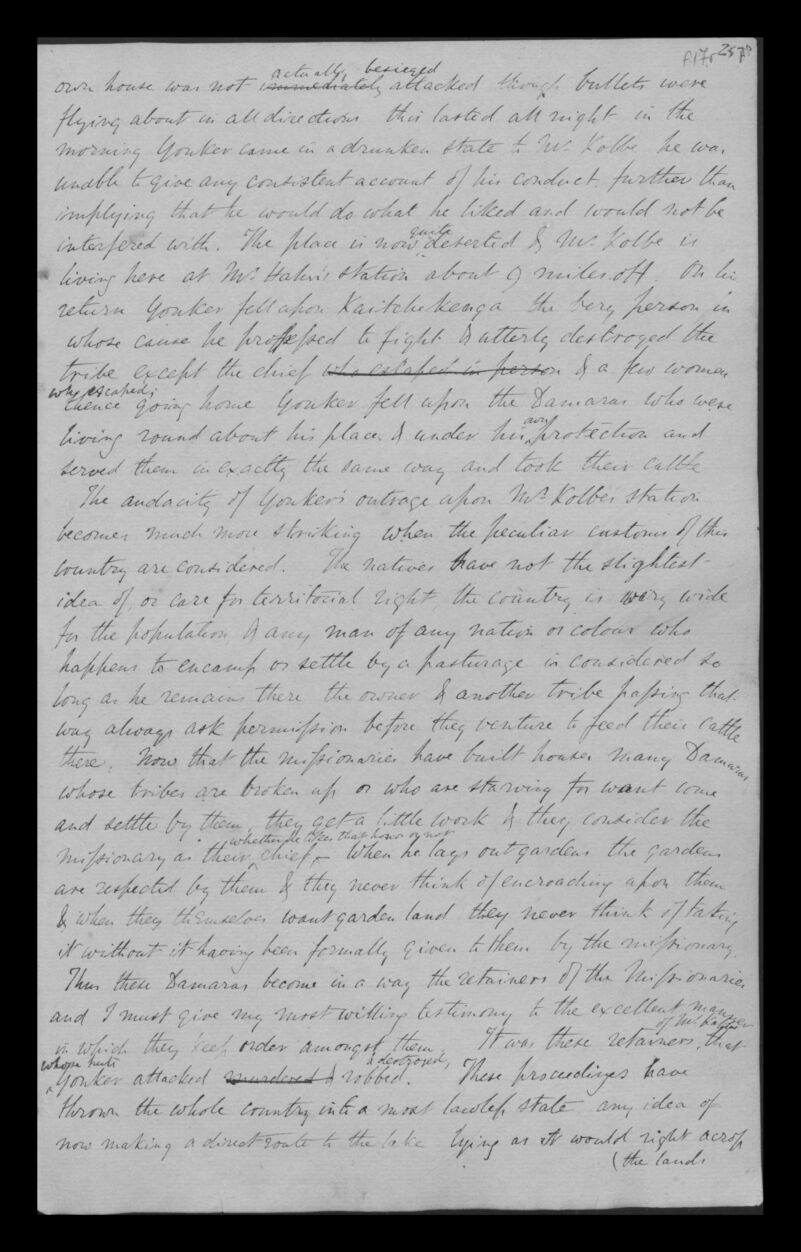 f17r 257
actually, besieged
own house was not immediately attacked though bullets were
flying about in all directions this lasted all night in the
morning Yonker came in a drunken state to Mr. Kolbe he was
unable to give any consistent account of his conduct, further than
implying that he would do what he liked and would not be
interfered with. The place is now quite deserted & Mr. Kolbe is
living here at Mr. Hahn's station about 9 miles off. On his
return Yonker fell upon Kaitchekenga the very person in
whose cause he professed to fight & utterly destroyed the
tribe except the chief who escaped in person & a few women
who escaped;
thence going home Yonker fell upon the Damaras who were
living round about his place & under his own protection and
served them in exactly the same way and took their cattle
The audacity of Yonker's outrage upon Mr. Kolbe's station
becomes much more striking when the peculiar customs of this
country are considered. The natives have not the slightest
idea of, or care for territorial right, the country is very wide
for the population, & any man of any nation or colour who
happens to encamp or settle by a pasturage is considered so
long as he remains there the owner & another tribe passing that
way always ask permission before they venture to feed their cattle
there. Now that the missionaries have built houses many Damaras
whose tribes are broken up or who are starving for want come
and settle by them, they get a little work & they consider the
whether he likes that honor or not
missionary as their chief. When he lays out gardens the gardens
are respected by them & they never think of encroaching upon them
& when they themselves want garden land they never think of taking
it without it having been formally given to them by the missionary.
Thus these Damaras become in a way the retainers of the Missionaries
and I must give my most willing testimony to the excellent manner
in which they keep order amongst them. It was these retainers of Mr. Kolbe, that
whose huts & destroyed,
Yonker attacked murdered & robbed. These proceedings have
thrown the whole country into a most lawless state, any idea of
now making a direct route to the lake lying as it would right across
(the lands